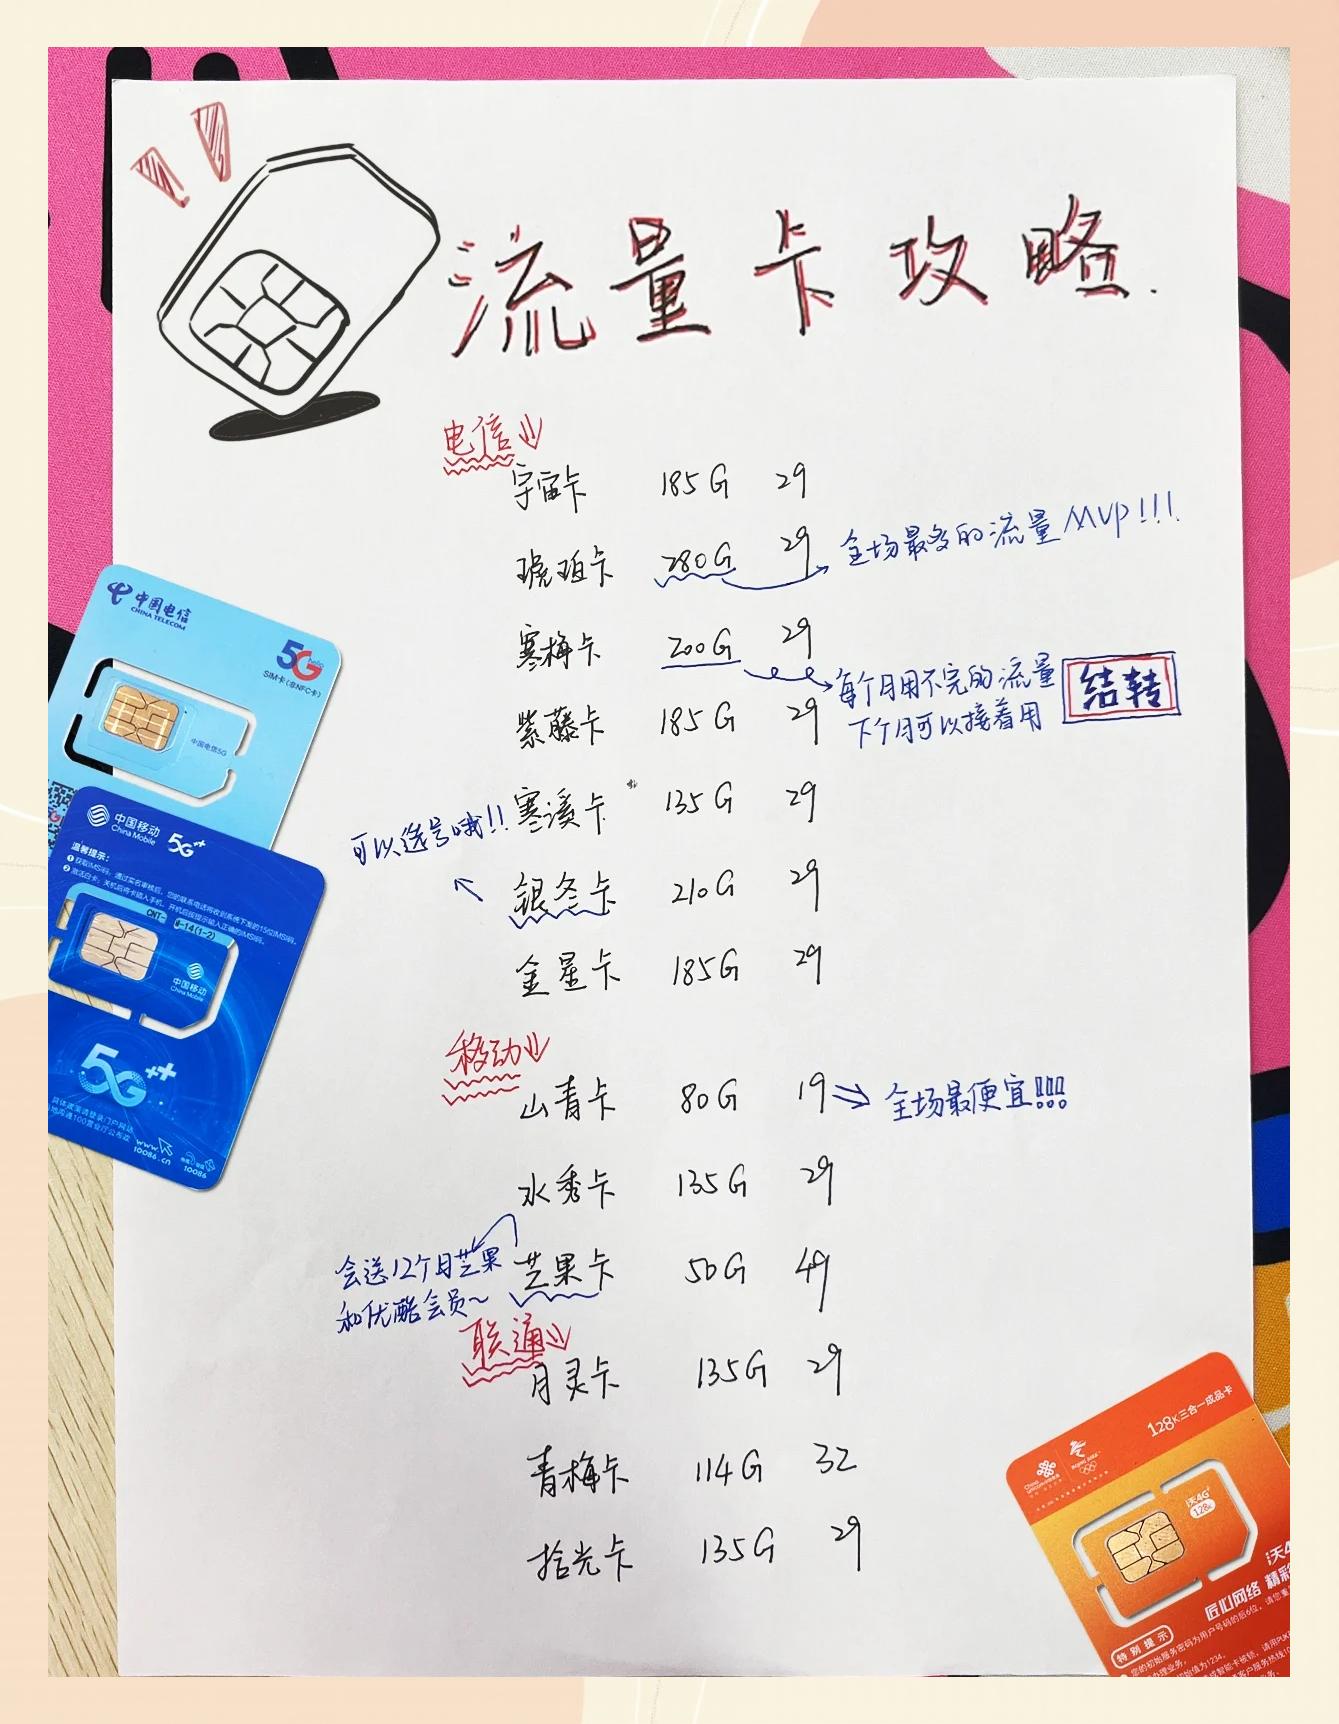 流量卡攻略.
电信
宇宙卡 185G 29
琥珀卡 280G 29 全场最多的流量MVP!!!
寒梅卡 200G 29
每个月用不完的流量 结转
下个月可以接着用
紫藤卡 185G 29
寒溪卡 135G 29
可以选号哦!!
银冬卡 210G 29
金星卡 185G 29
移动
山青卡 80G 19 全场最便宜!!!
水秀卡 135G 29
芒果卡 50G 49
会送12个月芒果
和优酷会员~
联通
月灵卡 135G 29
青梅卡 114G 32
拾光卡 135G 29
中国电信
CHINA TELECOM
5G hello
SIM卡(含NFC卡)
中国电信5G
中国移动 5G++
China Mobile
温馨提示:
中国移动
China Mobile
5G++
www.
10086.cn
10086
128K三合一成品卡
沃4G
128K
匠心网络 精彩
特别提示